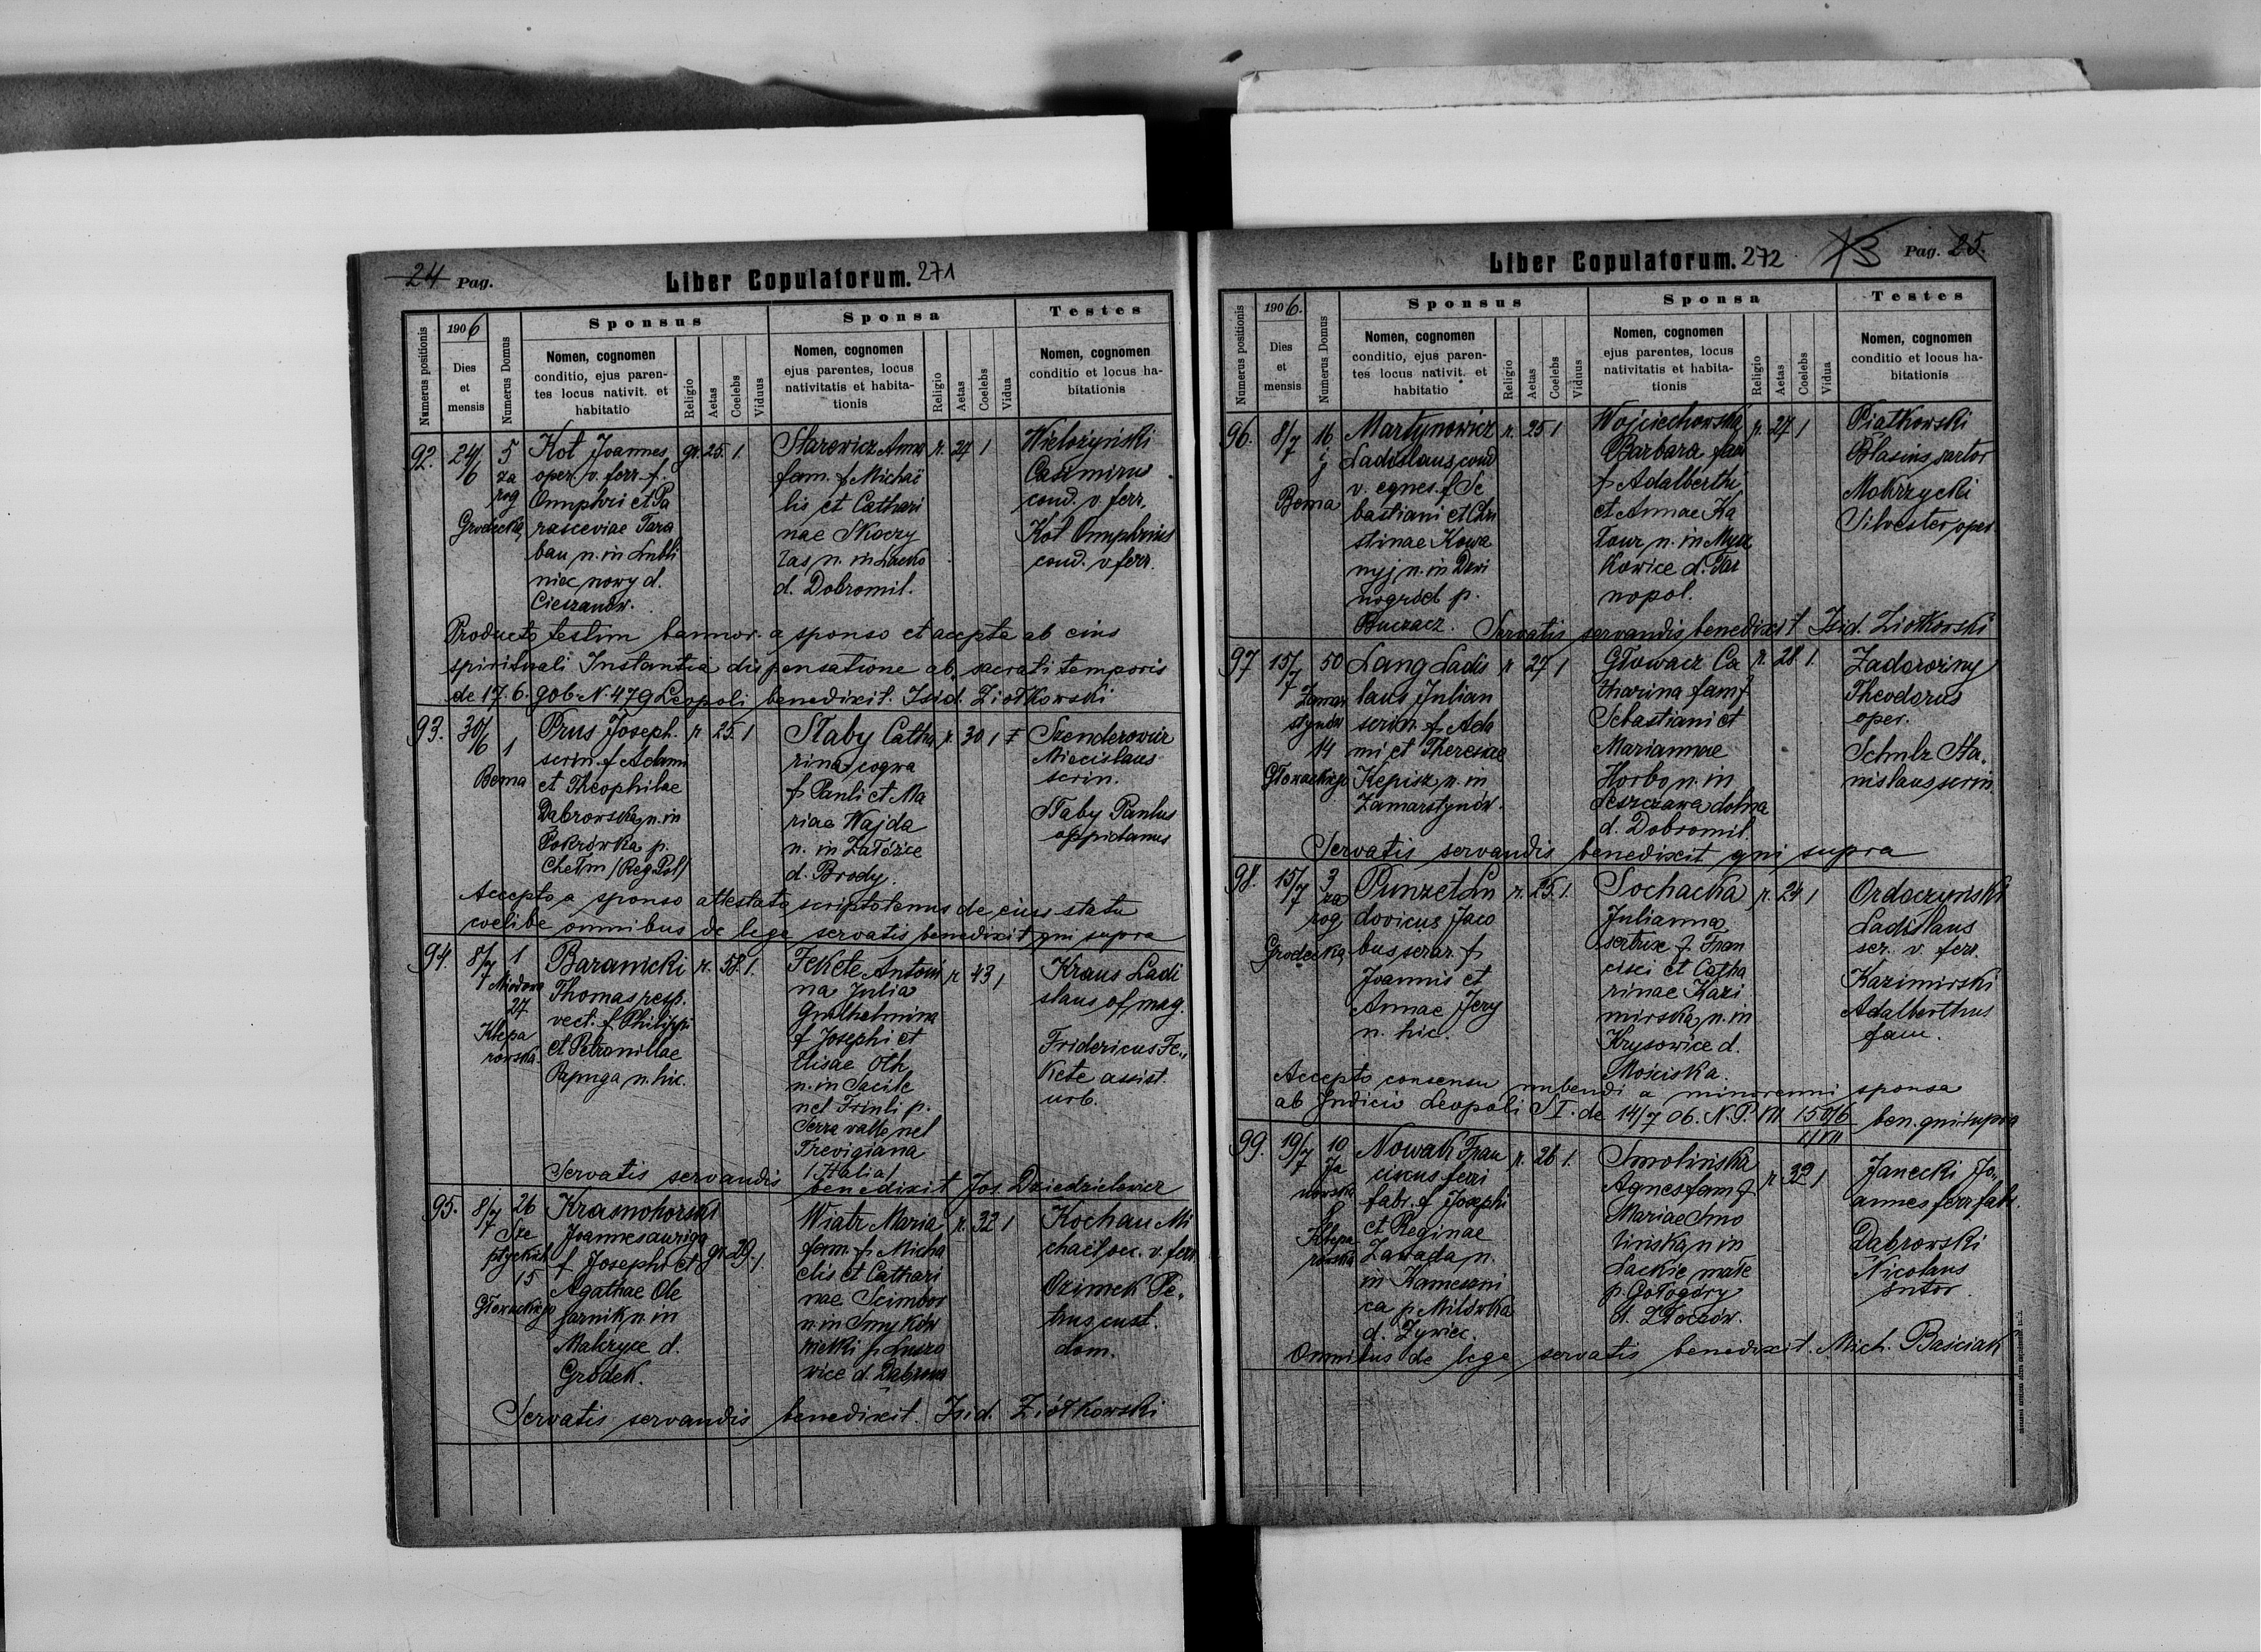 24 Pag.
Liber Copulatorum. 271
Numerus positionis
1906
Dies
et
mensis
Numerus Domus
Sponsus
Nomen, cognomen
conditio, ejus paren-
tes locus nativit. et
habitatio
Religio
Aetas
Coelebs
Viduus
Sponsa
Nomen, cognomen
ejus parentes, locus
nativitatis et habita-
tionis
Religio
Aetas
Coelebs
Vidua
Testes
Nomen, cognomen
conditio et locus ha-
bitationis
92.
24/6
5
za
rog
Grodecka
Kot Joannes
oper. v. ferr. f.
Onuphri et Pa
rasceviae Tara
ban n. in Lubli
niec nowy d.
Cieszanów.
gr. 25. 1.
Starowicz Anna
fam. f Michaë
lis et Cathari
nae Skoczy
las n. in Lacko
d. Dobromil.
r. 24 1
Wielożyński
Casimirus
cond. v. ferr.
Kot Onuphrius
cond. v ferr.
Producto testim bannor. a sponso et accepta ab eius
spirituali Instantia dispensatione ab sacrati temporis
de 17. 6. 906 N. 479 Leopoli benedixit. Isid. Ziołkowski
93.
30/6
1
Bema
Prus Joseph.
scrin. f Adami
et Theophilae
Dąbrowska n. in
Pokrówka p.
Chełm (Reg Pol)
r. 25. 1
Słaby Catha
rina coqua
f Pauli et Ma
riae Wajda
n. in Załóźce
d. Brody.
r. 30. 1
Szenderowicz
Miecislaus
scrin.
Słaby Paulus
oppidanus
Accepto a sponso attestato scriptotenus de eius statu
coelibe omnibus de lege servatis benedixit qui supra
94.
8/7
1
Miodowa
27
Klepa
rowska.
Baranicki
Thomas resp.
vect. f Philippi
et Petronillae
Papuga n. hic.
r. 58. 1.
Fekete Antoni
na Julia
Guilhelmina
f Josephi et
Elisae Oth
n. in Sacile
nel Friuli p.
Serra valle nel
Trevigiana
(Italia)
r 43 1
Kraus Ladi
slaus of. mag.
Fridericus Fe„
kete assist.
urb.
Servatis servandis benedixit Jos. Dziedzielewicz
95.
8/7
26
Sze
ptyckich
15
Głowackiego
Krasnohorski
Joannes auriga
f Josephi et
Agathae Ole
jarnik n. in
Malczyce d.
Gródek.
gr. 29. 1.
Wiatr Maria
fam. f. Micha
elis et Cathari
nae Scimbor
n. in Smyków
mełki p. Luszo
wice d. Dąbrowa
r. 32 1
Kochan Mi
chaël occ. v. ferr.
Ozimek Pe„
trus cust.
dom.
Servatis servandis benedixit. Isid. Ziółkowski
Liber Copulatorum. 272
Pag. 25.
Numerus positionis
1906.
Dies
et
mensis
Numerus Domus
Sponsus
Nomen, cognomen
conditio, ejus paren-
tes locus nativit. et
habitatio
Religio
Aetas
Coelebs
Viduus
Sponsa
Nomen, cognomen
ejus parentes, locus
nativitatis et habita-
tionis
Religio
Aetas
Coelebs
Vidua
Testes
Nomen, cognomen
conditio et locus ha-
bitationis
96.
8/7
16
j
Bema
Martynowicz
Ladislaus cond
v. eques. f Se
bastiani et Chri
stinae Kowa
nyj n. in Dzwi
nogród p.
Buczacz.
r. 25 1
Wojciechowska
Barbara fam
f Adalberthi
et Annae Ka
Tour n. in Mysz
kowice d. Tar
nopol.
r. 27 1
Piatkowski
Blasius sartor
Mokrzycki
Silvester oper
Servatis servandis benedixit Isid. Ziołkowski
97
15/7
50
Zamar
stynów
14
Głowackiego
Lang Ladis
laus Julian
scrin. f Ada
mi et Theresiae
Kepisz n. in
Zamarstynów.
r 27 1
Głowacz Ca
tharina fam f
Sebastiani et
Mariannae
Horbo n. in
Leszczawa dolna
d. Dobromil.
r. 28 1.
Zadorożny
Theodorus
oper.
Schulz Sta„
nislaus scrin.
Servatis servandis benedixit qui supra
98.
15/7
3
za
rog
Grodecka
Punzet Lu
dovicus Jaco
bus serar. f
Joannis et
Annae Jery
n. hic.
r. 25. 1.
Sochacka
Julianna
sertrix f. Fran
cisci et Catha
rinae Kazi
mirska n. in
Krysowice d.
Mościska.
r. 24 1
Ordaczyński
Ladislaus
ser. v. ferr.
Kazimirski
Adalberthus
fam.
Accepto consensu nubendi a minorenni sponsa
ab Judicio Leopoli S I. de 14/7 06. N. P. VII 150/6 ben. qui supra
99.
19/7
10
Ja
nowska
8
Klepa
rowska
Nowak Fran
ciscus ferri
fabr. f Josephi
et Reginae
Zawada n.
in Kamesznica
p. Milówka
d. Żywiec.
r. 26 1.
Smolińska
Agnes fam f
Mariae Smo
lińska n in
Lackie małe
p. Gołogóry
d. Złoczów.
r 32 1
Janecki Jo„
annes ferr. fabr.
Dąbrowski
Nicolaus
sutor.
Omnibus de lege servatis benedixit. Mich. Baściak